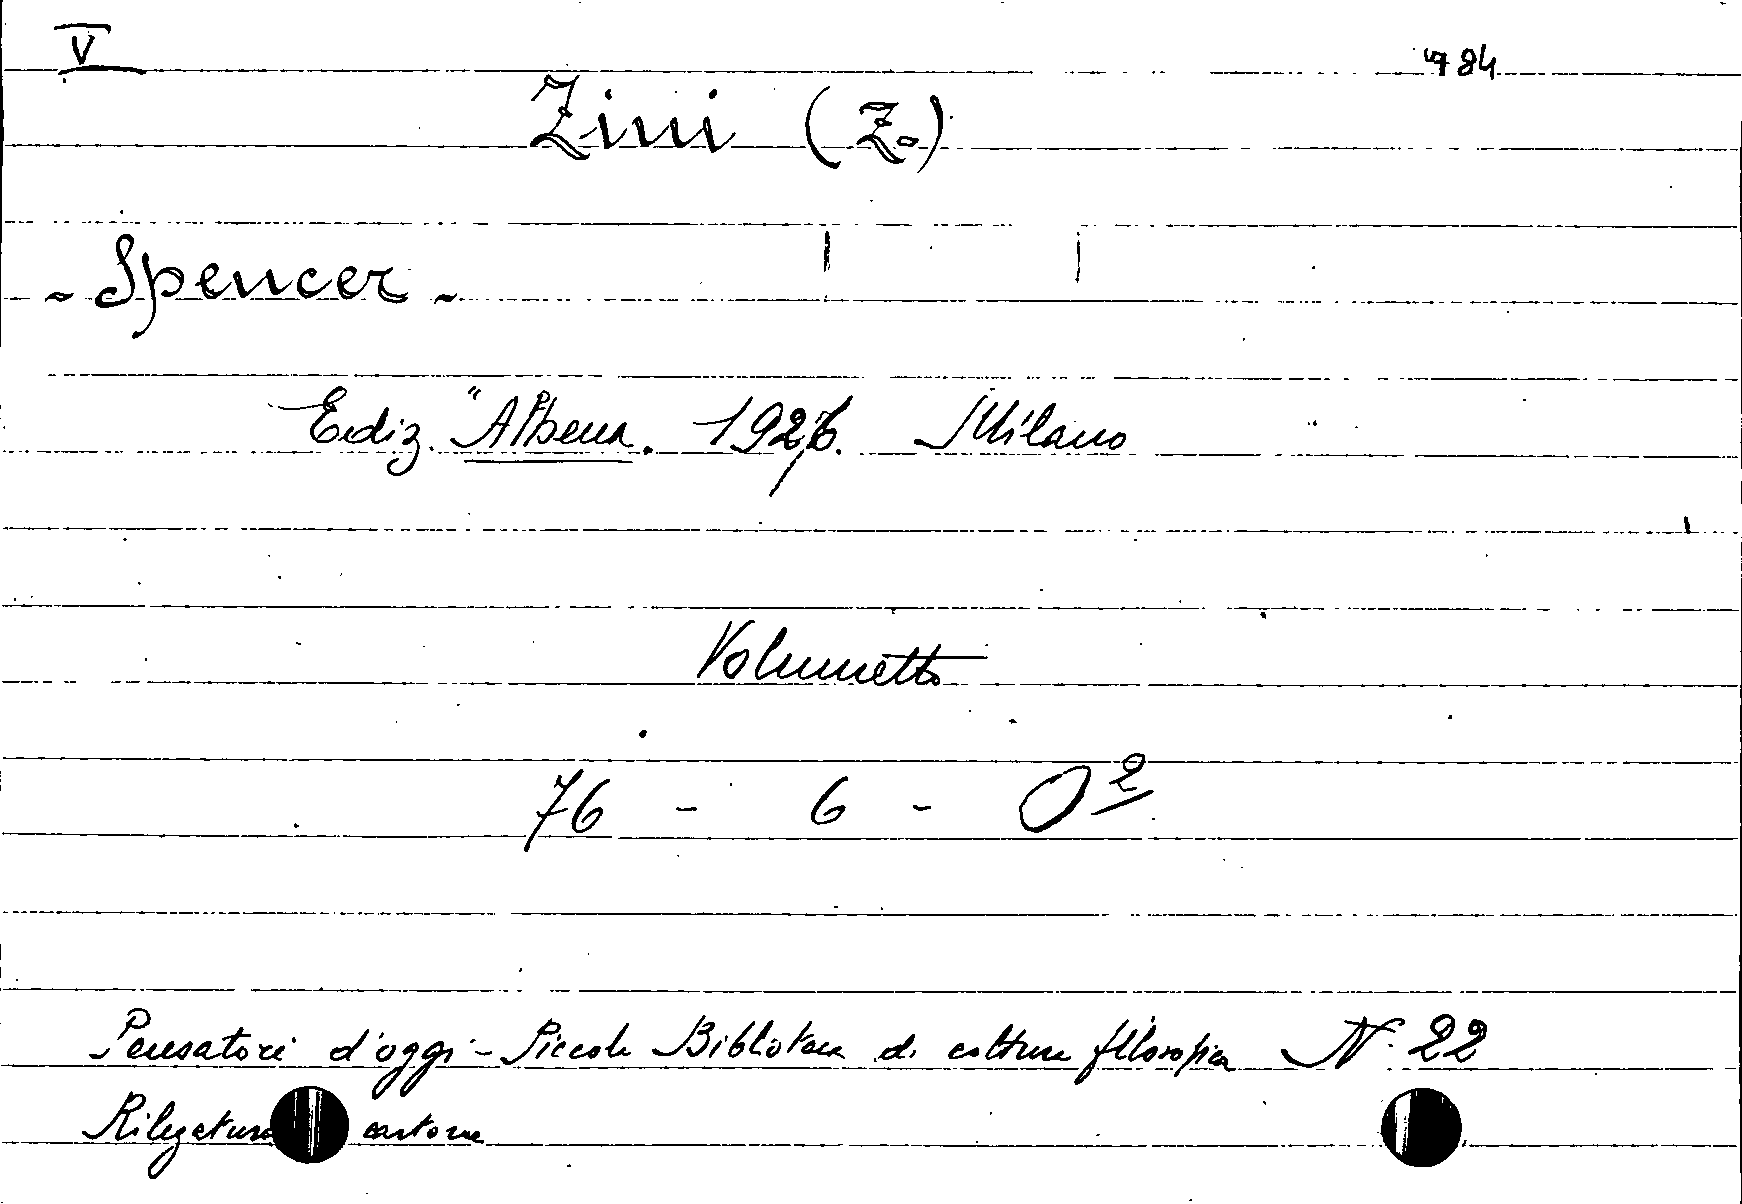 V
784
Zini (Z.)
- Spencer -
Ediz. "Athena. 1926. Milano
Volumetto
76 - 6 - O 2
Pensatori d'oggi - Piccola Biblioteca di coltura filosofica N. 22
Rilegatura cartone